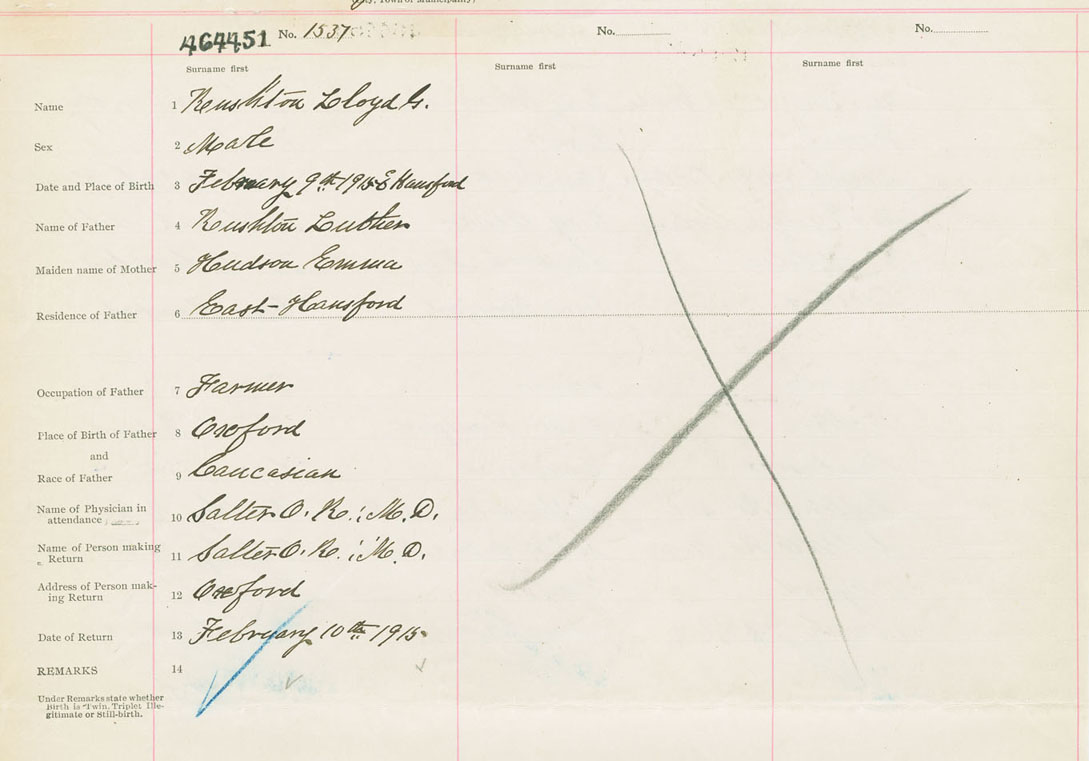 464451 No. 1537 No. No.
Surname first Surname first Surname first
Name 1 Rushton Lloyd G.
Sex 2 Male
Date and Place of Birth 3 February 9th 1915 E Hansford
Name of Father 4 Rushton Luther
Maiden name of Mother 5 Hudson Emma
Residence of Father 6 East-Hansford
Occupation of Father 7 Farmer
Place of Birth of Father 8 Oxford
and
Race of Father 9 Caucasian
Name of Physician in
attendance 10 Salter O. R.; M.D.
Name of Person making
Return 11 Salter O. R.; M.D.
Address of Person mak-
ing Return 12 Oxford
Date of Return 13 February 10th 1915
REMARKS 14
Under Remarks state whether
Birth is Twin, Triplet Ille-
gitimate or Still-birth.